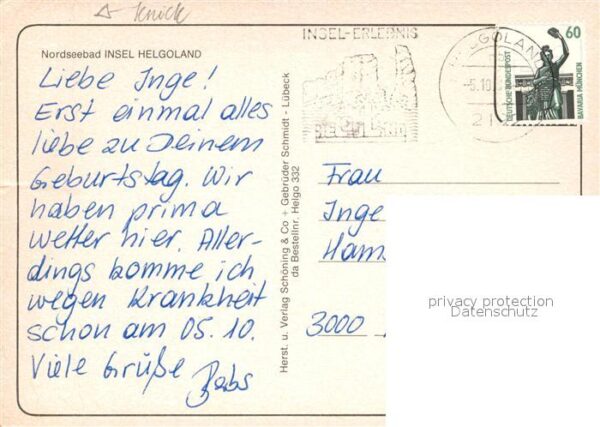 Knick
Nordseebad INSEL HELGOLAND
Liebe Inge!
Erst einmal alles
liebe zu Deinem
Geburtstag. Wir
haben prima
Wetter hier. Aller-
dings komme ich
wegen Krankheit
schon am 05.10.
Viele Grüße Babs
Herst. u. Verlag Schöning & Co + Gebrüder Schmidt - Lübeck
da Bestellnr. Helgo 332
INSEL-ERLEBNIS
HELGOLAND
-5.10.
21
60
DEUTSCHE BUNDESPOST
BAVARIA MÜNCHEN
Frau
Inge
3000
privacy protection
Datenschutz